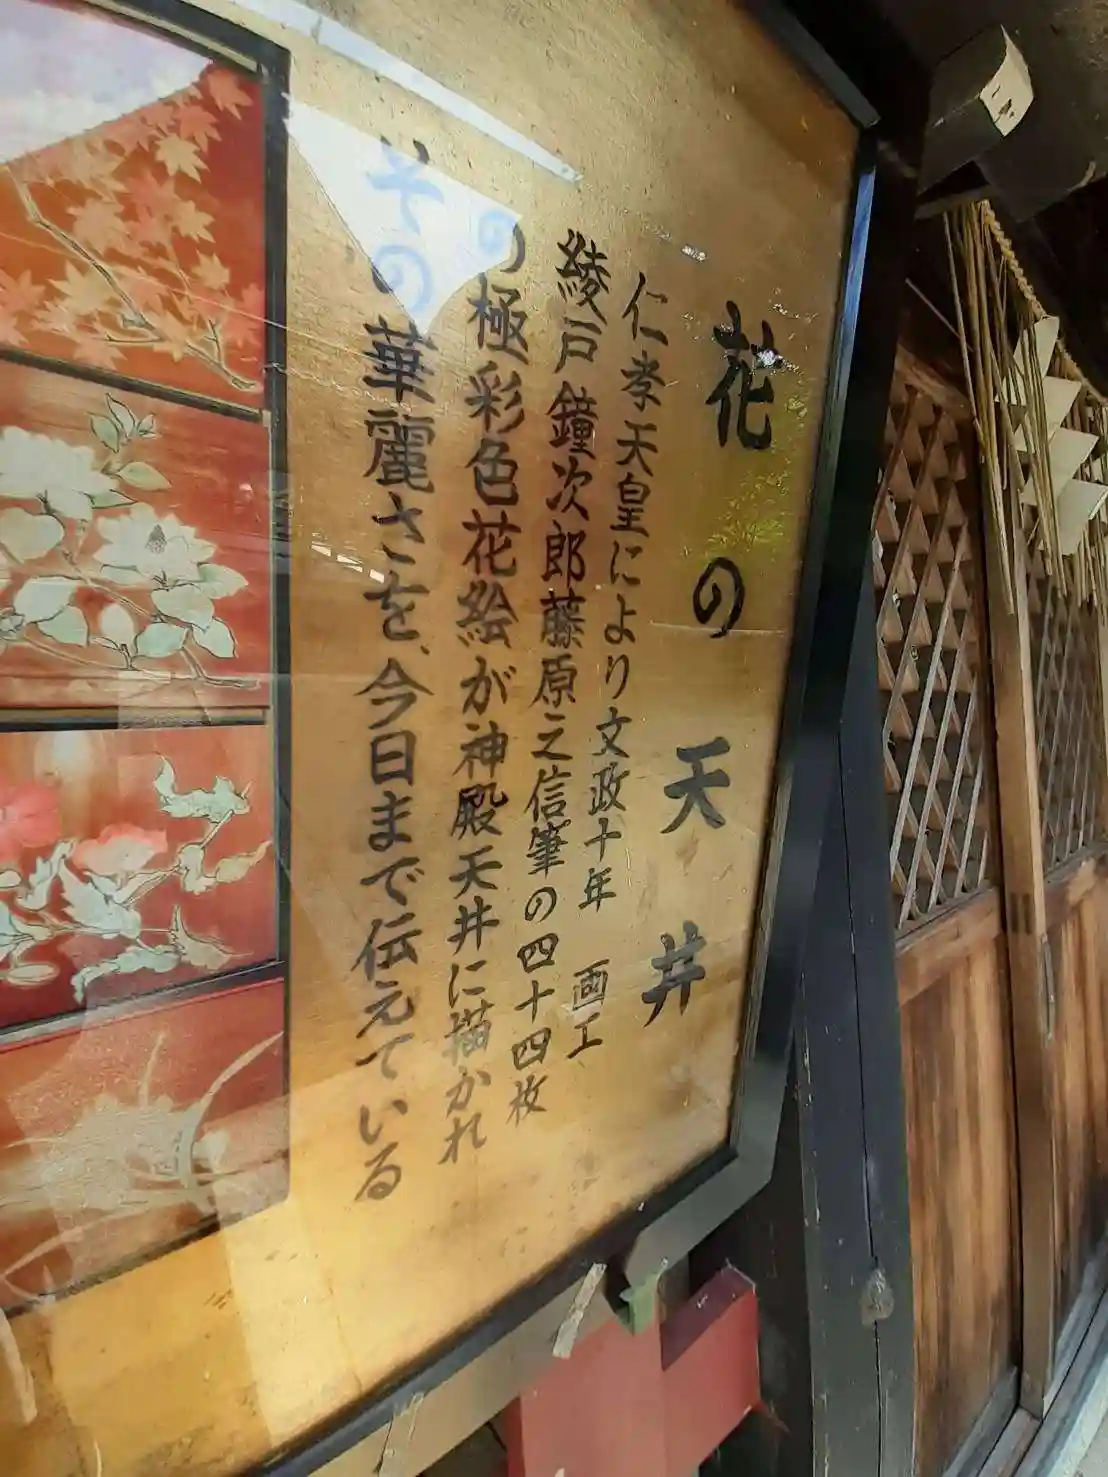 花の天井
仁孝天皇により文政十年 画工
綾戸鐘次郎藤原之信筆の四十四枚
の極彩色花絵が神殿天井に描かれ
その華麗さを、今日まで伝えている